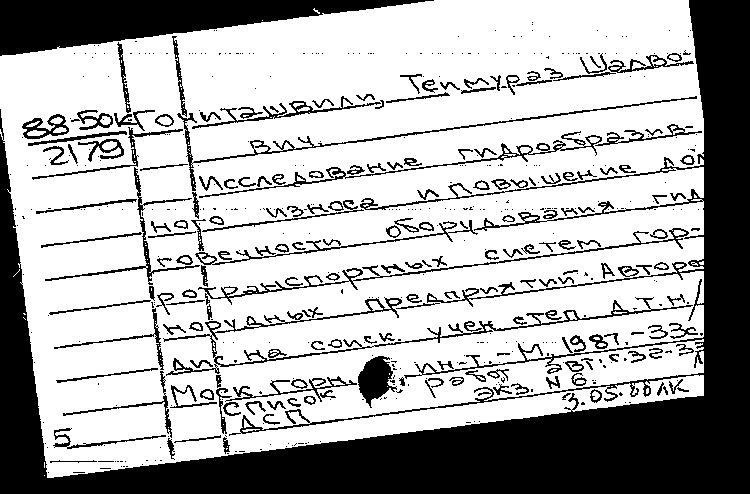 88-50К
2179
Гочиташвили, Теймураз Шалво-
вич.
Исследование гидроабразив-
ного износа и повышение дол
говечности оборудования гид
ротранспортных систем гор-
норудных предприятий. Авторе
дис. на соиск. учен. степ. д.т.н/
Моск. горн. ин-т. - М, 1987. - 33с.
Список работ авт.: с. 32-33
ДСП экз. N 6.
3.05.88 ЛК
5